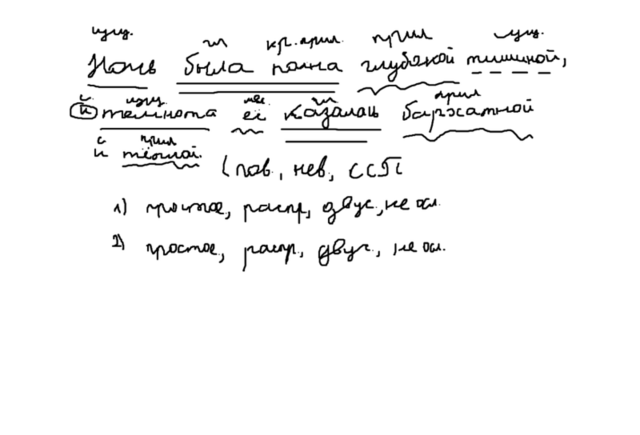 сущ. гл кр.прил. прил сущ.
Ночь была полна глубокой тишиной,
с сущ. мес. гл прил
и темнота её казалась бархатной
с прил
и тёплой. (пов., нев, ССП
1) простое, распр, двус., не осл.
2) простое, распр, двус., не осл.